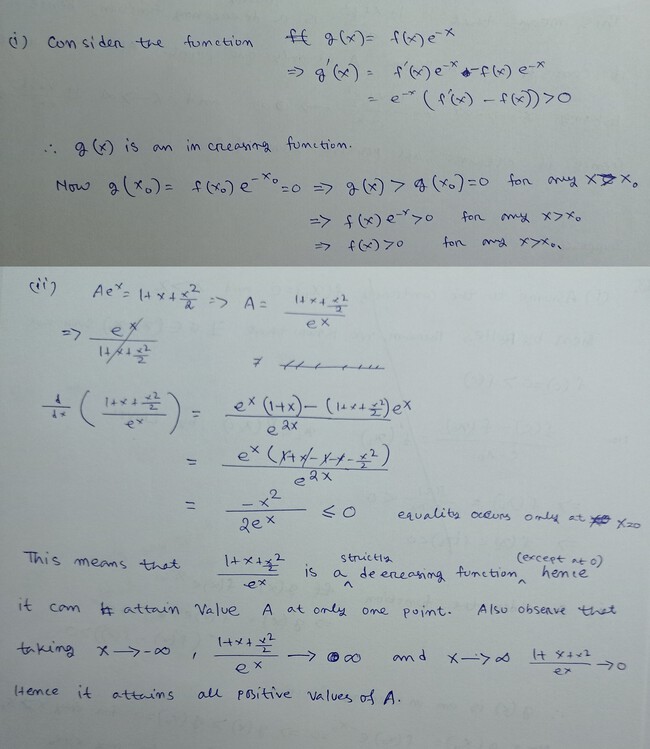 (i) Consider the function g(x) = f(x)e^{-x}
=> g'(x) = f'(x)e^{-x} - f(x) e^{-x}
= e^{-x} ( f'(x) - f(x)) > 0
∴ g(x) is an increasing function.
Now g(x₀) = f(x₀) e^{-x₀} = 0 => g(x) > g(x₀) = 0 for any x > x₀
=> f(x) e^{-x} > 0 for any x > x₀
=> f(x) > 0 for any x > x₀.
(ii) Ae^x = 1 + x + x²/2 => A = (1 + x + x²/2)/e^x
=> e^x/(1 + x + x²/2)
d/dx ((1 + x + x²/2)/e^x) = (e^x (1+x) - (1 + x + x²/2) e^x)/e^{2x}
= e^x (1 + x - 1 - x - x²/2)/e^{2x}
= -x²/2e^x ≤ 0 equality occurs only at x=0
This means that (1 + x + x²/2)/e^x is a strictly decreasing function (except at 0) hence
it can attain value A at only one point. Also observe that
taking x → -∞, (1 + x + x²/2)/e^x → ∞ and x → ∞ (1 + x + x²)/e^x → 0
Hence it attains all positive values of A.